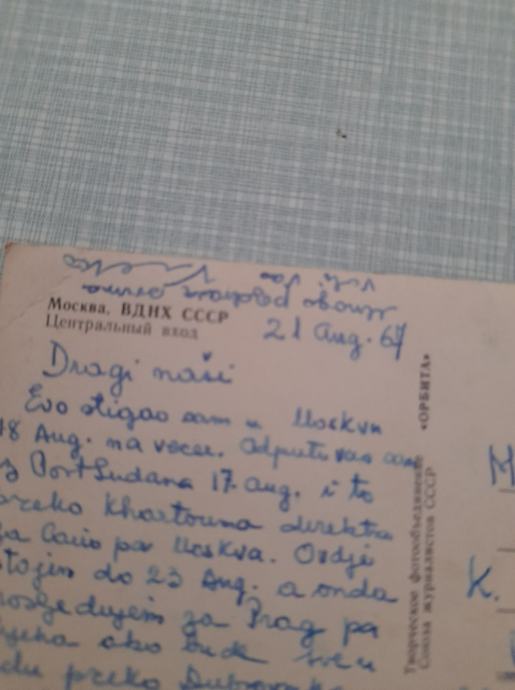 Mnogo pozdrava svima
Москва, ВДНХ СССР
Центральный вход
21 Aug. 67
Dragi naši
Evo stigao sam u Moskvu
18 Aug. na vecer. Odputovao sam
iz Port Sudana 17. aug. i to
preko Khartouma direktno
za Cairo pa Moskva. Ovdje
stojim do 23 Aug. a onda
prosljedujem za Prag pa
ako bude
preko
«ОРБИТА»
Творческое фотообъединение
Союза журналистов СССР
M
K.